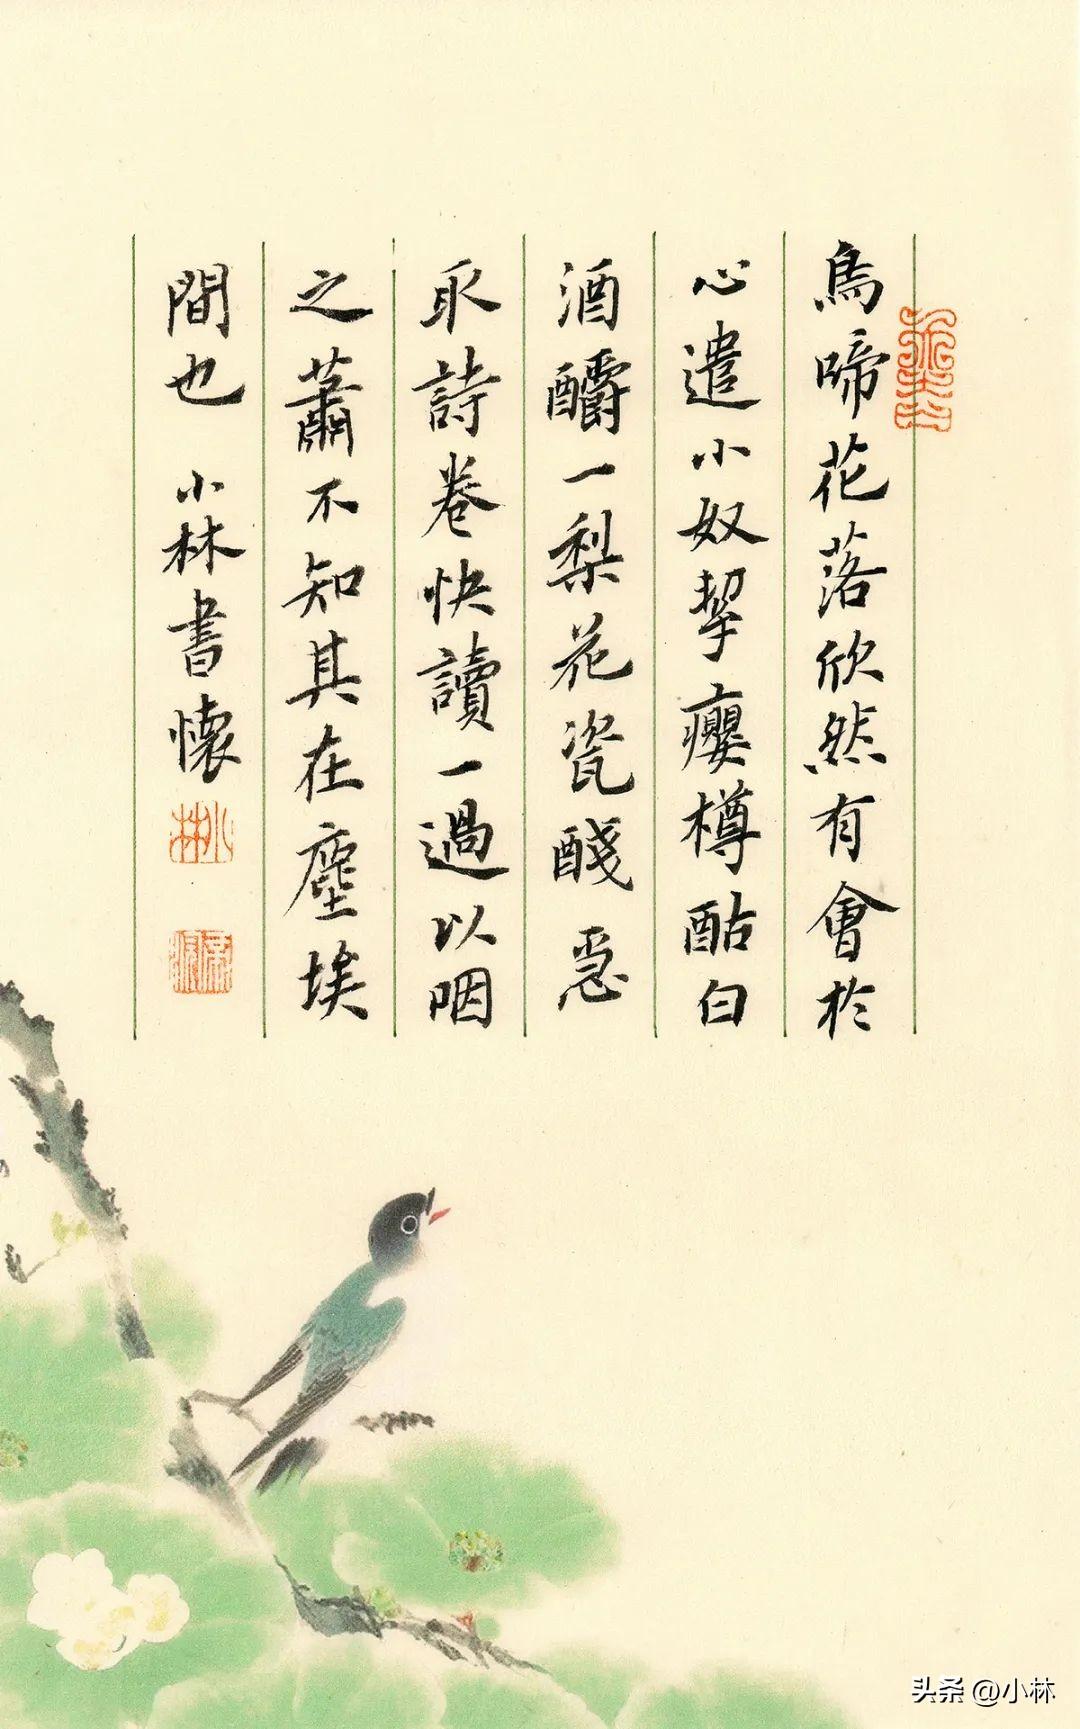 鳥啼花落欣然有會於
心遣小奴挈癭樽酤白
酒釂一梨花瓷醆急
取詩卷快讀一過以咽
之蕭不知其在塵埃
間也 小林書懷
小林
头条 @小林